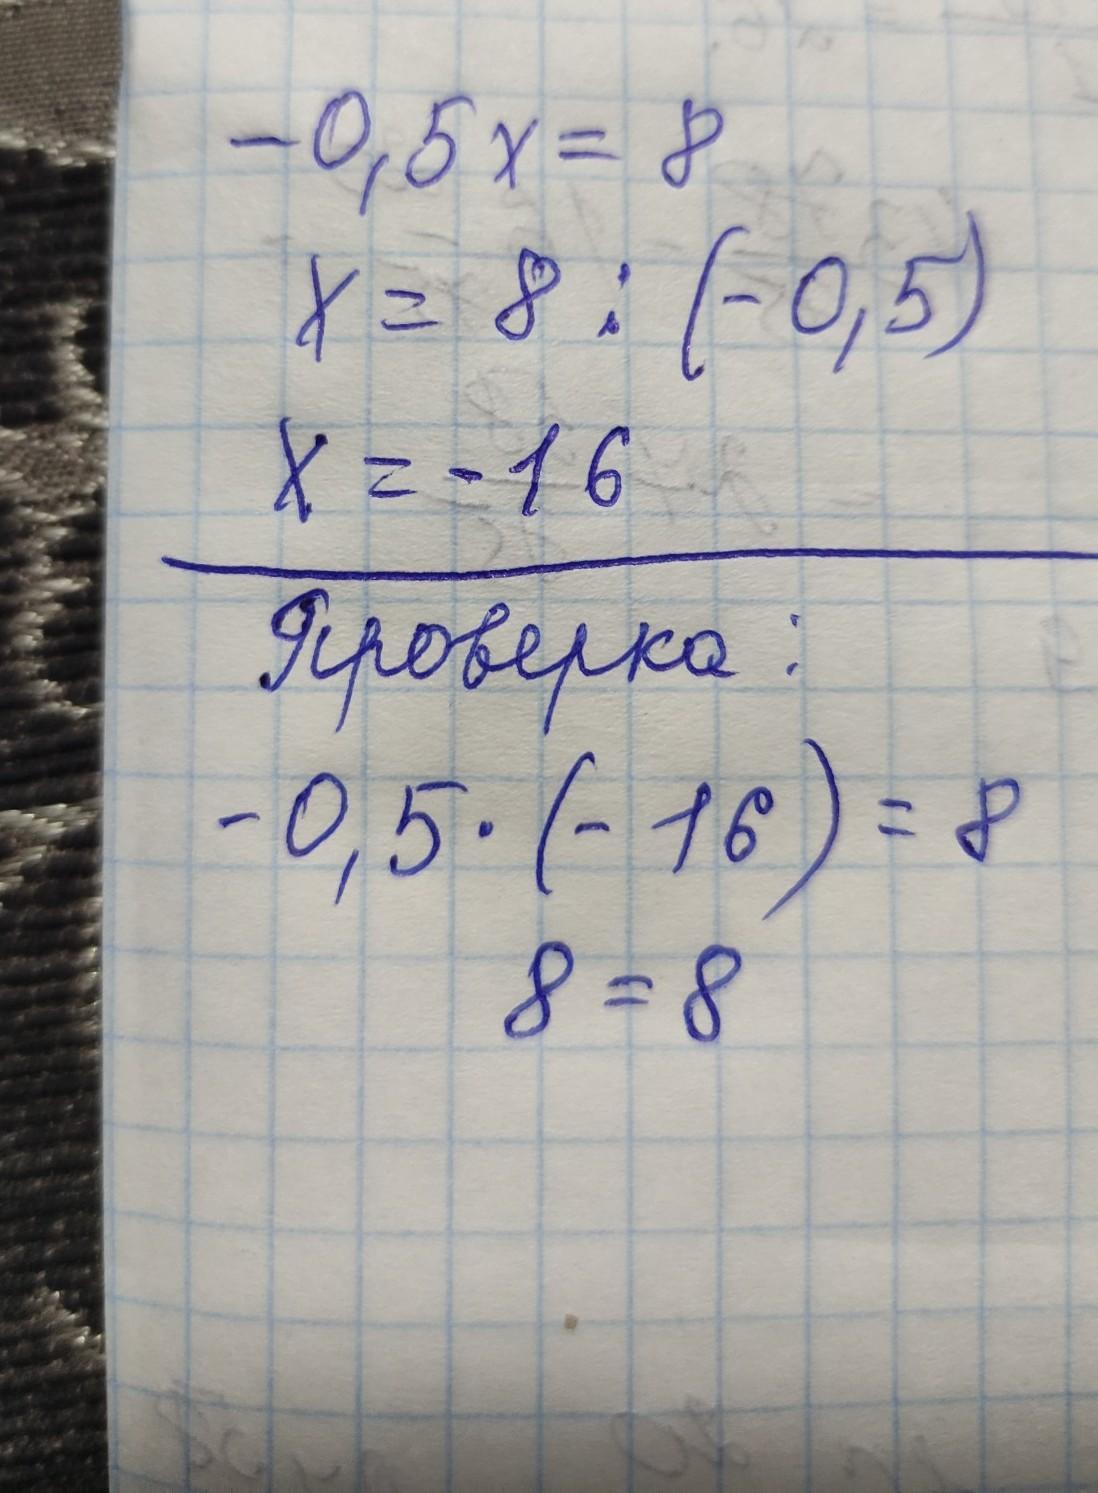 -0,5x = 8
x = 8 : (-0,5)
x = -16
Проверка :
-0,5 · (-16) = 8
8 = 8